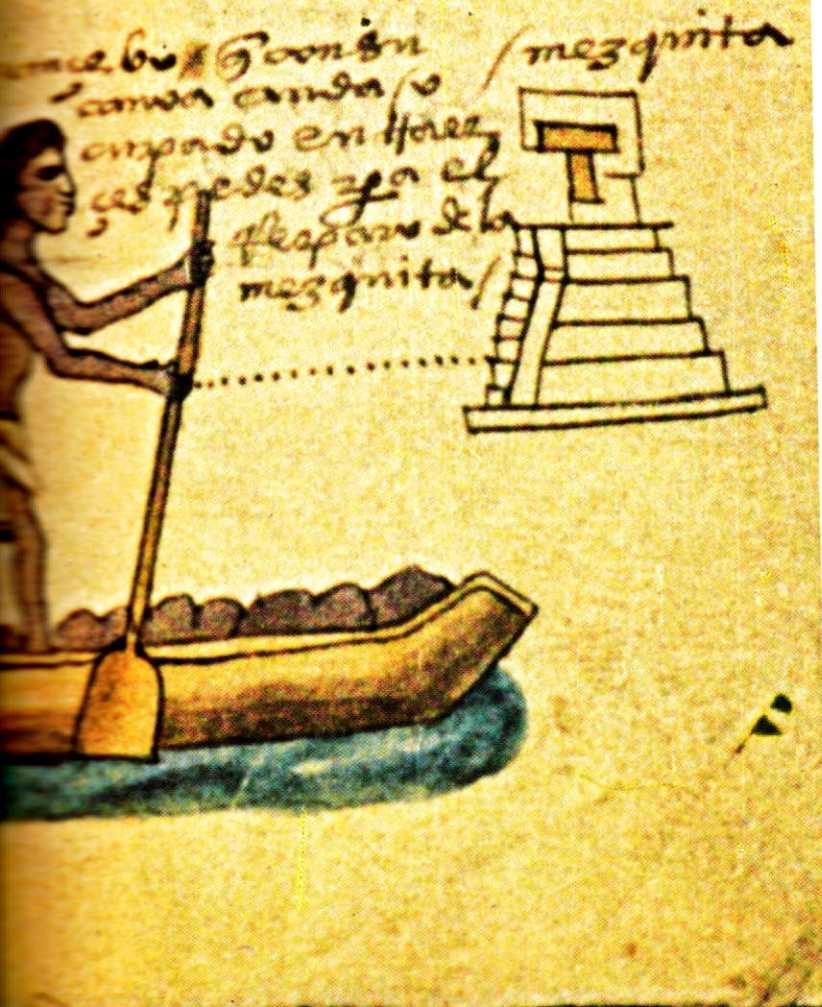 q̃ con su
canoa anda / o
cupado en traer
çespedes pa el
rreparo de la
mezquita /
/ mezquita